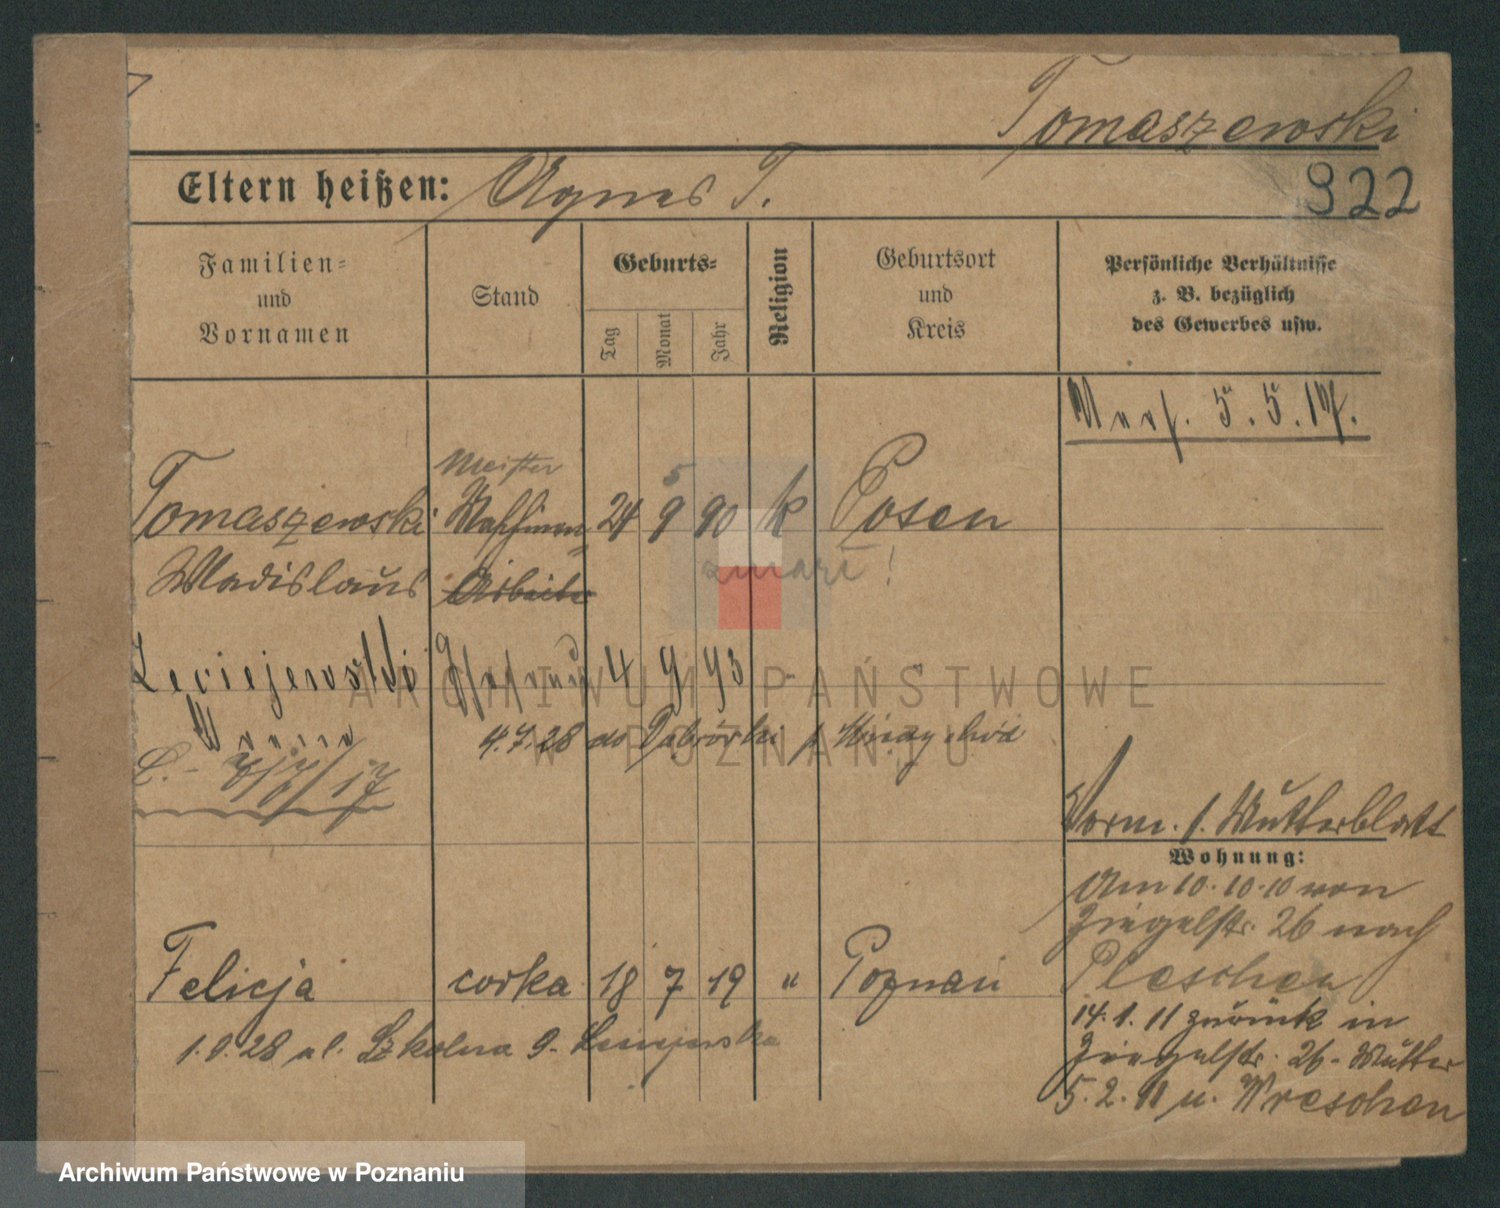 Tomaszewski
Eltern heißen: Agnes T.
322
Familien-
und
Vornamen
Stand
Geburts-
Tag
Monat
Jahr
Religion
Geburtsort
und
Kreis
Persönliche Verhältnisse
z. B. bezüglich
des Gewerbes usw.
5.5.17.
Meister
Tomaszewski
24 9 90 k Posen
5
Wladislaus Arbeiter
zmarł!
Leciejewski Ehefrau 4 9 93
4.7.28 do
17
Vorm. s. Mutterblatt
Wohnung:
Am 10.10.10 von
Ziegelstr. 26 nach
Pleschen
14.1.11 zurück in
Ziegelstr. 26 - Mutter
5.2.11 n. Wreschen
Felicja córka 18 7 19 " Poznań
1.9.28 ul. Szkolna 9.
ARCHIWUM PAŃSTWOWE
W POZNANIU
Archiwum Państwowe w Poznaniu